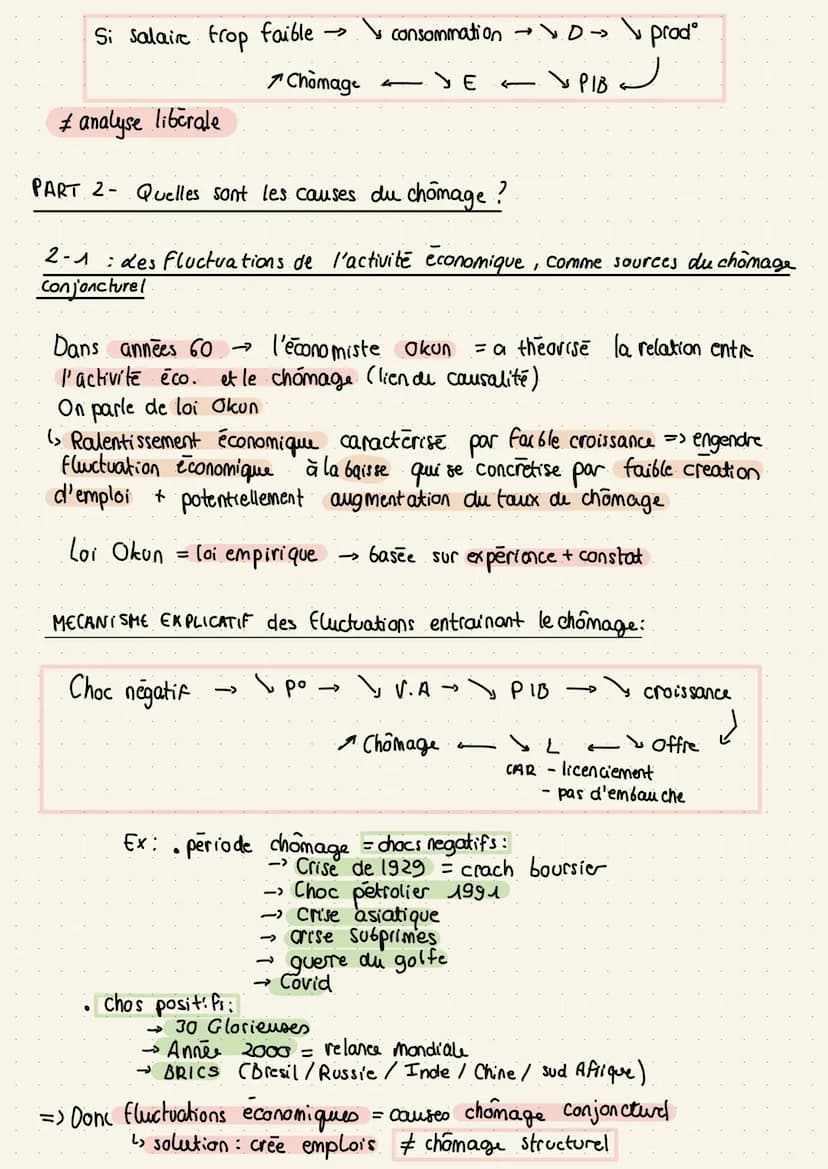 Si salaire trop faible → ↘ consommation → ↘ D → ↘ prod°
↗ Chômage ← ↘ E ← ↘ PIB ↵
≠ analyse libérale
PART 2- Quelles sont les causes du chômage ?
2-1 : des fluctuations de l'activité économique, comme sources du chômage
conjoncturel
Dans années 60 → l'économiste Okun = a théorisé la relation entre
l'activité éco. et le chômage (lien du causalité)
On parle de loi Okun
↳ Ralentissement économique caractérisé par faible croissance => engendre
fluctuation économique à la baisse qui se concrétise par faible création
d'emploi + potentiellement augmentation du taux du chômage
Loi Okun = loi empirique → basée sur expérience + constat
MECANISME EXPLICATIF des fluctuations entrainant le chômage :
Choc négatif → ↘ P° → ↘ V.A → ↘ PIB → ↘ croissance
↗ Chômage ← ↘ L ← ↘ Offre ↵
CAR - licenciement
- pas d'embauche
Ex : . période chômage = chocs negatifs :
→ Crise de 1929 = crach boursier
→ Choc pétrolier 1991
→ Crise asiatique
→ crise subprimes
→ guerre du golfe
→ Covid
. Chos positifs :
→ 30 Glorieuses
→ Année 2000 = relance mondiale
→ BRICS (Bresil / Russie / Inde / Chine / sud Afrique)
=> Donc fluctuations économiques = causes chômage conjoncturel
↳ solution : crée emplois ≠ chômage structurel